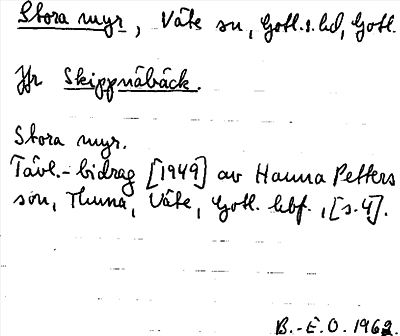 Stora myr, Väte sn, Gotl.s. hd, Gotl.
Jfr Skippnäbäck.
Stora myr.
Tävl.-bidrag [1949] av Hanna Petters
son, Thuna, Väte, Gotl. hbf., [s.4].
B.-E.O. 1962.